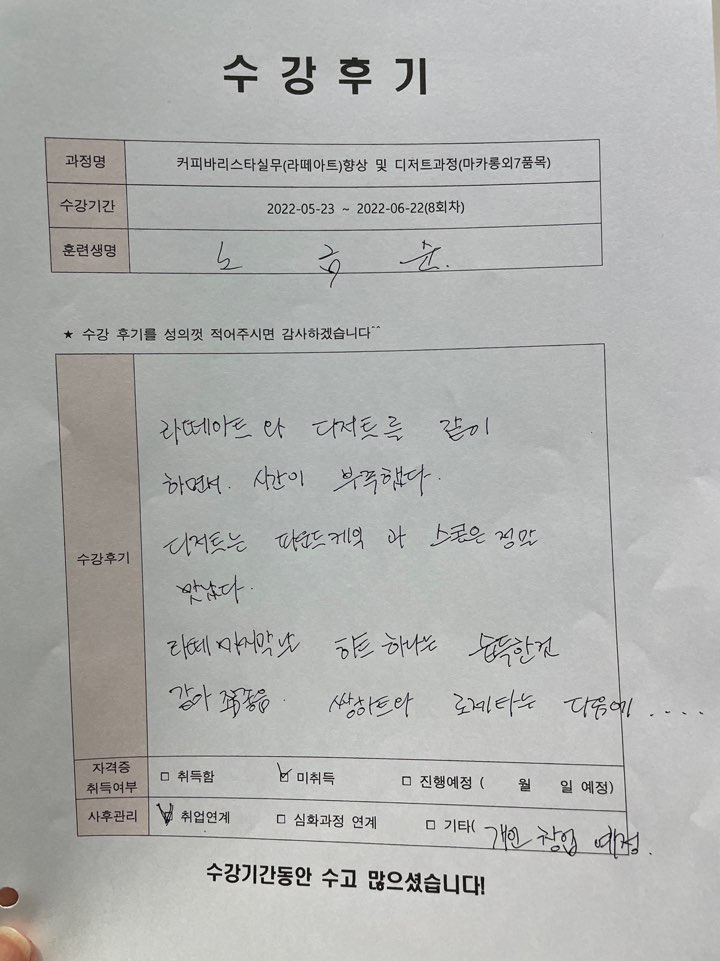 수강후기
과정명 커피바리스타실무(라떼아트)향상 및 디저트과정(마카롱외7품목)
수강기간 2022-05-23 ~ 2022-06-22(8회차)
훈련생명 노 순.
★ 수강 후기를 성의껏 적어주시면 감사하겠습니다^^
수강후기
라떼아트와 디저트를 같이
하면서. 시간이 부족했다.
디저트는 파운드케익 과 스콘은 정말
맛났다.
라떼 마지막날 하트 하나는 습득한건
같아 좋음. 쌍하트와 로제타는 다음에....
자격증 취득여부 □ 취득함 ☑ 미취득 □ 진행예정 ( 월 일 예정)
사후관리 ☑ 취업연계 □ 심화과정 연계 □ 기타( 개인 창업 예정.
수강기간동안 수고 많으셨습니다!